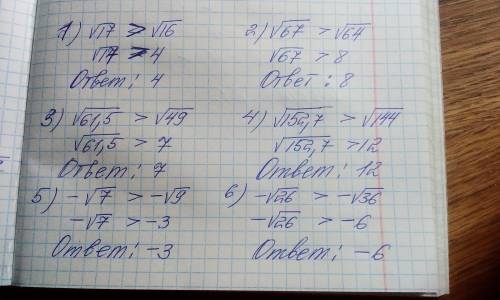 1) √17 > √16
√17 > 4
Ответ: 4
2) √67 > √64
√67 > 8
Ответ: 8
3) √61,5 > √49
√61,5 > 7
Ответ: 7
4) √152,7 > √144
√152,7 > 12
Ответ: 12
5) -√7 > -√9
-√7 > -3
Ответ: -3
6) -√26 > -√36
-√26 > -6
Ответ: -6